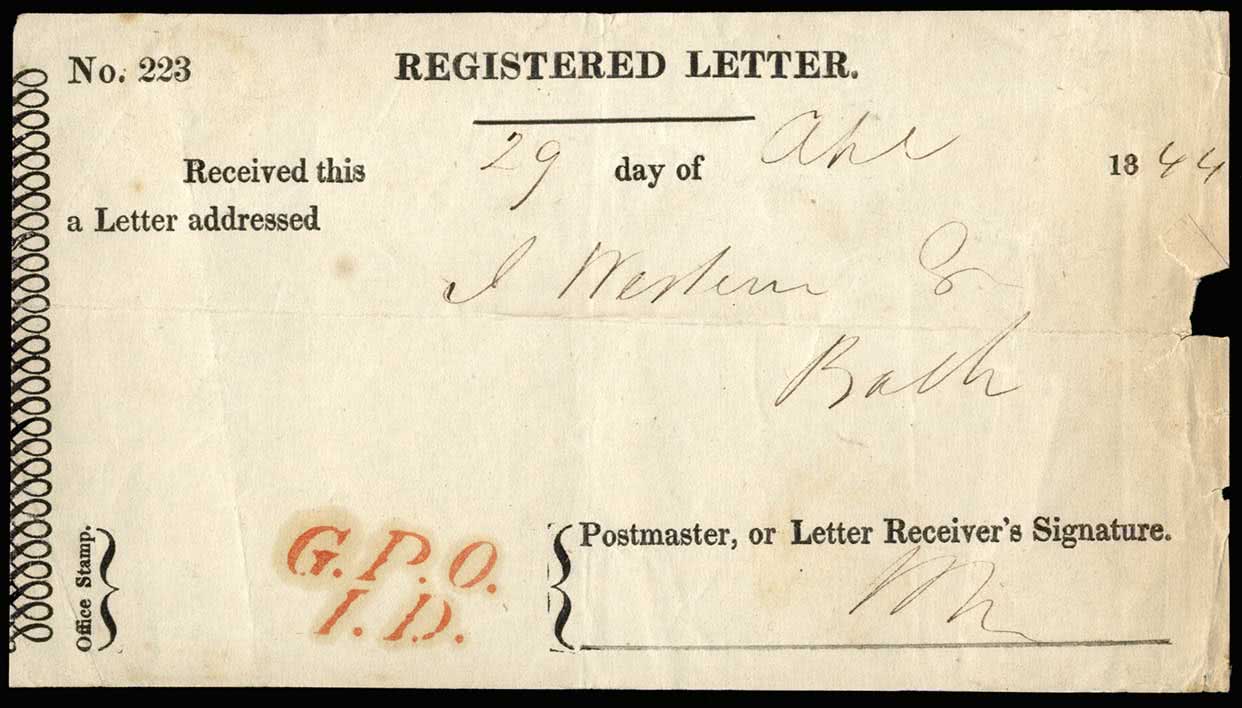 No. 223 REGISTERED LETTER.
Received this 29 day of Apl 1844
a Letter addressed
J Western
Bath
Office Stamp.
G.P.O.
I.D.
Postmaster, or Letter Receiver's Signature.